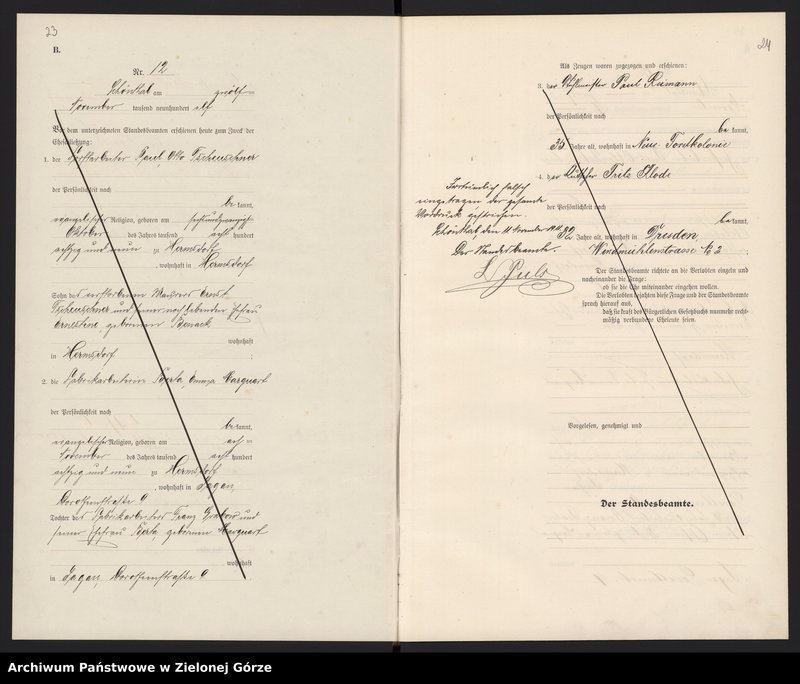 23
B.
Nr. 12
Schönthal am zwölf=
November tausend neunhundert elf
Vor dem unterzeichneten Standesbeamten erschienen heute zum Zweck der
Eheschließung:
1. der Paul, Otto Tschenschner
der Persönlichkeit nach
be kannt,
evangelischer Religion, geboren am sechsundzwanzigsten
Oktober des Jahres tausend acht hundert
achtzig und neun zu Hermsdorf
, wohnhaft in Hermsdorf
Sohn des verstorbenen Maurers Ernst
Tschenschner und seiner noch lebenden Ehefrau
Ernestine geborenen
wohnhaft
in Hermsdorf ;
2. die Fabrikarbeiterin Berta, Emma Marquart
der Persönlichkeit nach
be kannt,
evangelischer Religion, geboren am ach=
November des Jahres tausend acht hundert
achtzig und neun zu Hermsdorf
, wohnhaft in Sagan,
Dorotheenstraße 9
Tochter des Fabrikarbeiters Franz und
seiner Ehefrau Berta geborenen Marquart
wohnhaft
in Sagan, Dorotheenstraße 9 .
24
Als Zeugen waren zugezogen und erschienen:
3. der Paul Riemann
der Persönlichkeit nach
be kannt,
35 Jahre alt, wohnhaft in Neu=
4. der Kutscher Fritz Klode
der Persönlichkeit nach
be kannt,
32 Jahre alt, wohnhaft in Dresden,
Windmühlenstrasse No 2 .
Irrtümlich falsch
eingetragen der gesamte
Vordruck gestrichen.
Schönthal den 11. November 1911
Der Standesbeamte.
Der Standesbeamte richtete an die Verlobten einzeln und
nacheinander die Frage:
ob sie die Ehe miteinander eingehen wollen.
Die Verlobten bejahten diese Frage und der Standesbeamte
sprach hierauf aus,
daß sie kraft des Bürgerlichen Gesetzbuchs nunmehr recht-
mäßig verbundene Eheleute seien.
Vorgelesen, genehmigt und
Der Standesbeamte.
Archiwum Państwowe w Zielonej Górze